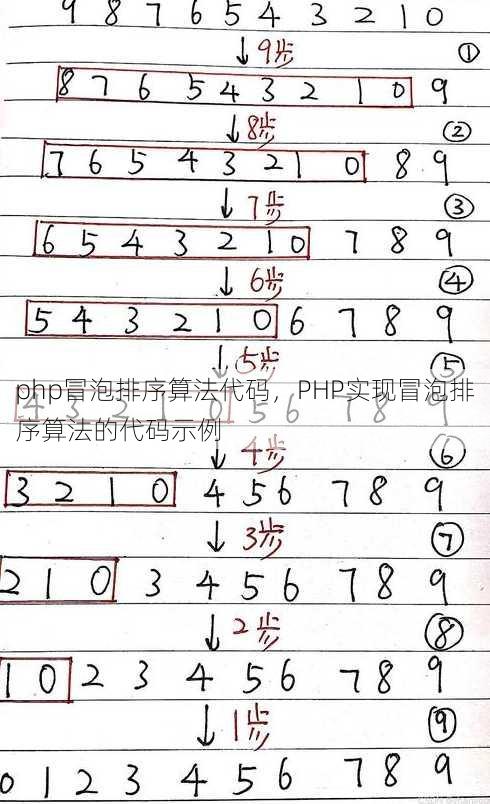 9 8 7 6 5 4 3 2 1 0
↓ 9步 ①
8 7 6 5 4 3 2 1 0 9
↓ 8步 ②
7 6 5 4 3 2 1 0 8 9
↓ 7步 ③
6 5 4 3 2 1 0 7 8 9
↓ 6步 ④
5 4 3 2 1 0 6 7 8 9
↓ 5步 ⑤
php冒泡排序算法代码，PHP实现冒泡排
4 3 2 1 0 5 6 7 8 9
序算法的代码示例
↓ 4步 ⑥
3 2 1 0 4 5 6 7 8 9
↓ 3步 ⑦
2 1 0 3 4 5 6 7 8 9
↓ 2步 ⑧
1 0 2 3 4 5 6 7 8 9
↓ 1步 ⑨
0 1 2 3 4 5 6 7 8 9